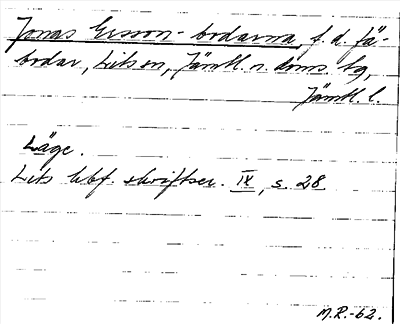 Jonas Ersson-bodarna, f. d. fä-
bodar, Lits sn, Jämtl. n. doms. tg,
Jämtl. l.
Läge.
Lits hbf. skriftser. IX, s. 28
M.R.-62.